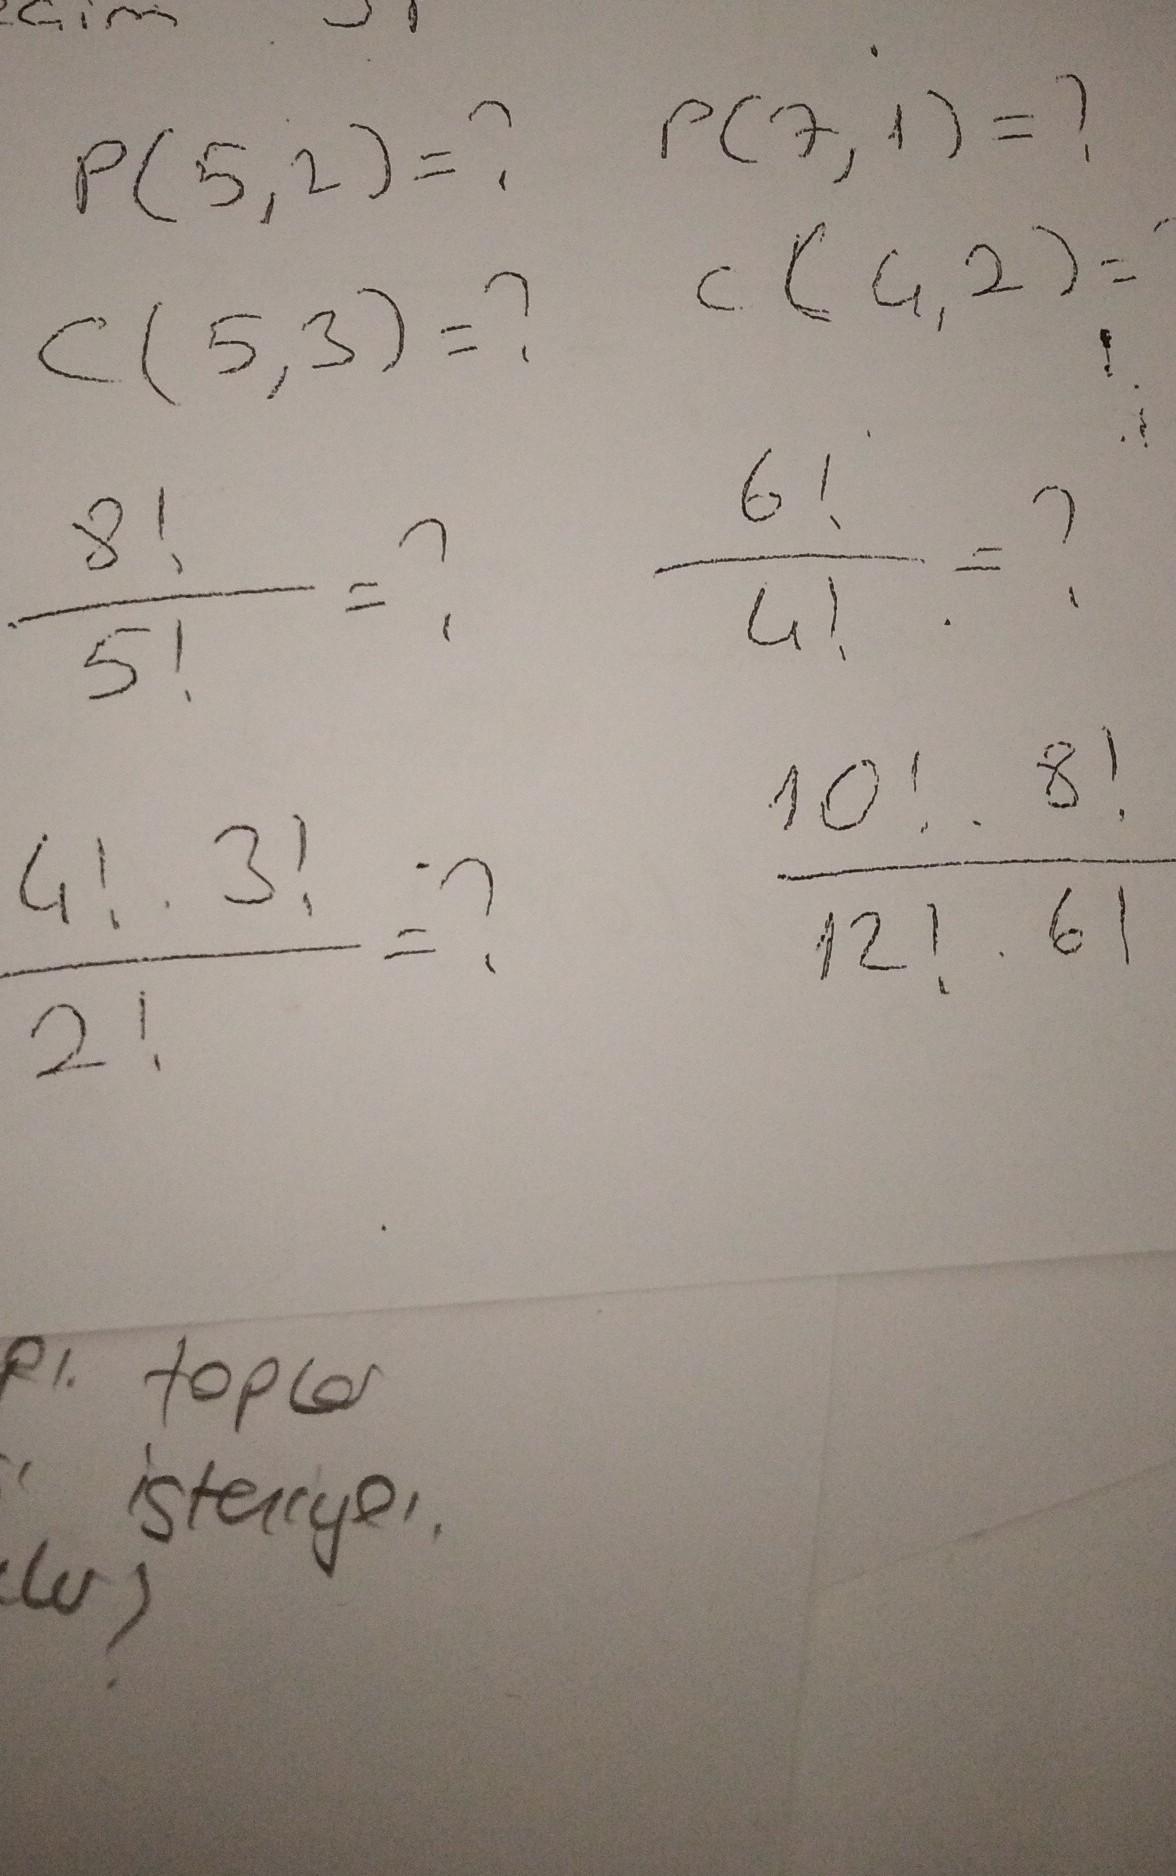 P(5,2)=? P(7,1)=?
C(5,3)=? C(4,2)=?
8! 6!
= ? = ?
5! 4!
4! . 3! 10! . 8!
= ?
2! 12! . 6!
toplar
isteniyor.
?